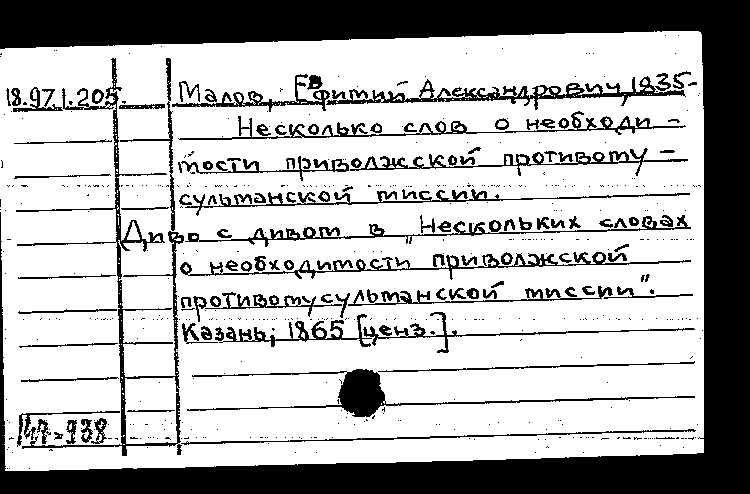 18.971.205. Малов, Евфимий Александрович, 1835-
Несколько слов о необходи-
мости приволжской противому-
сульманской миссии.
Диво с дивом в „Нескольких словах
о необходимости приволжской
противомусульманской миссии".
Казань, 1865 [ценз.].